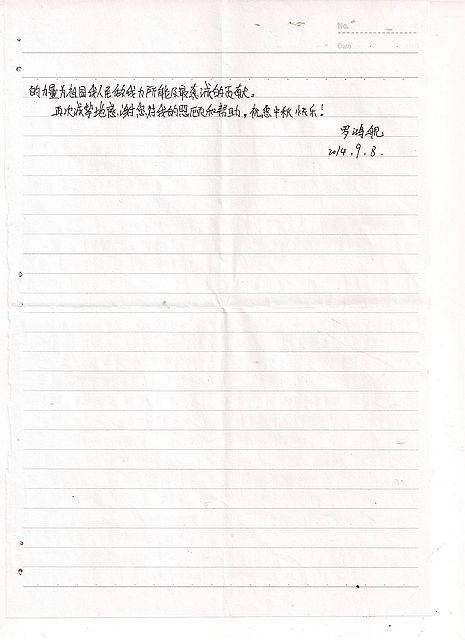 No.
Date
的力量为祖国我人民做我力所能及最真诚的贡献。
再次诚挚地感谢您给我的恩惠和帮助，祝您中秋快乐！
罗鸿舰
2014.9.8.